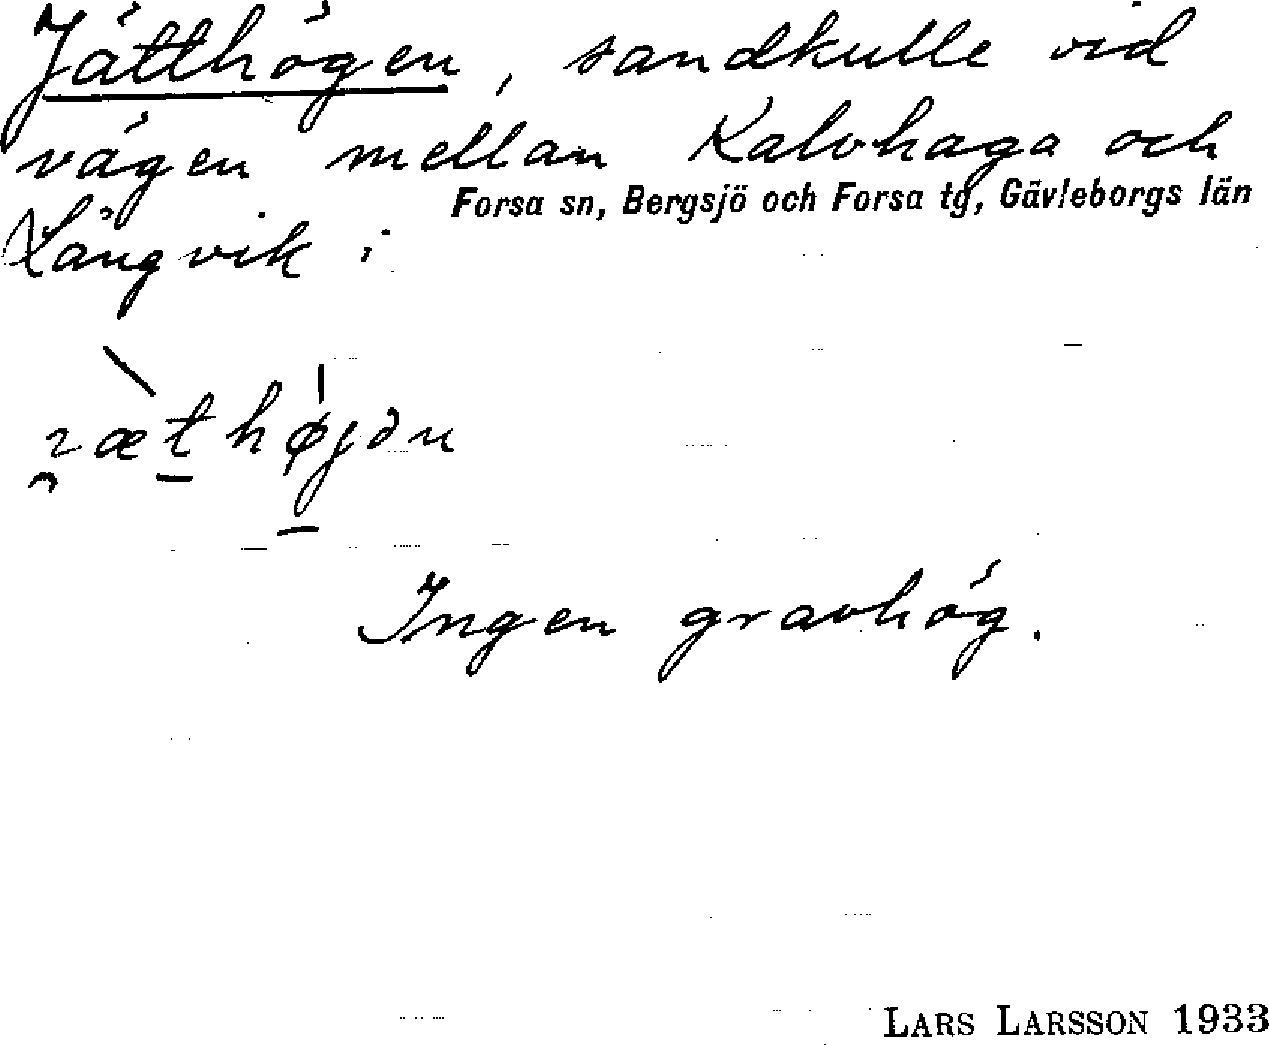 Jätthögen, sandkulle vid
vägen mellan Kalvhaga och
Forsa sn, Bergsjö och Forsa tg, Gävleborgs län
Långvik i
Ingen gravhög.
LARS LARSSON 1933